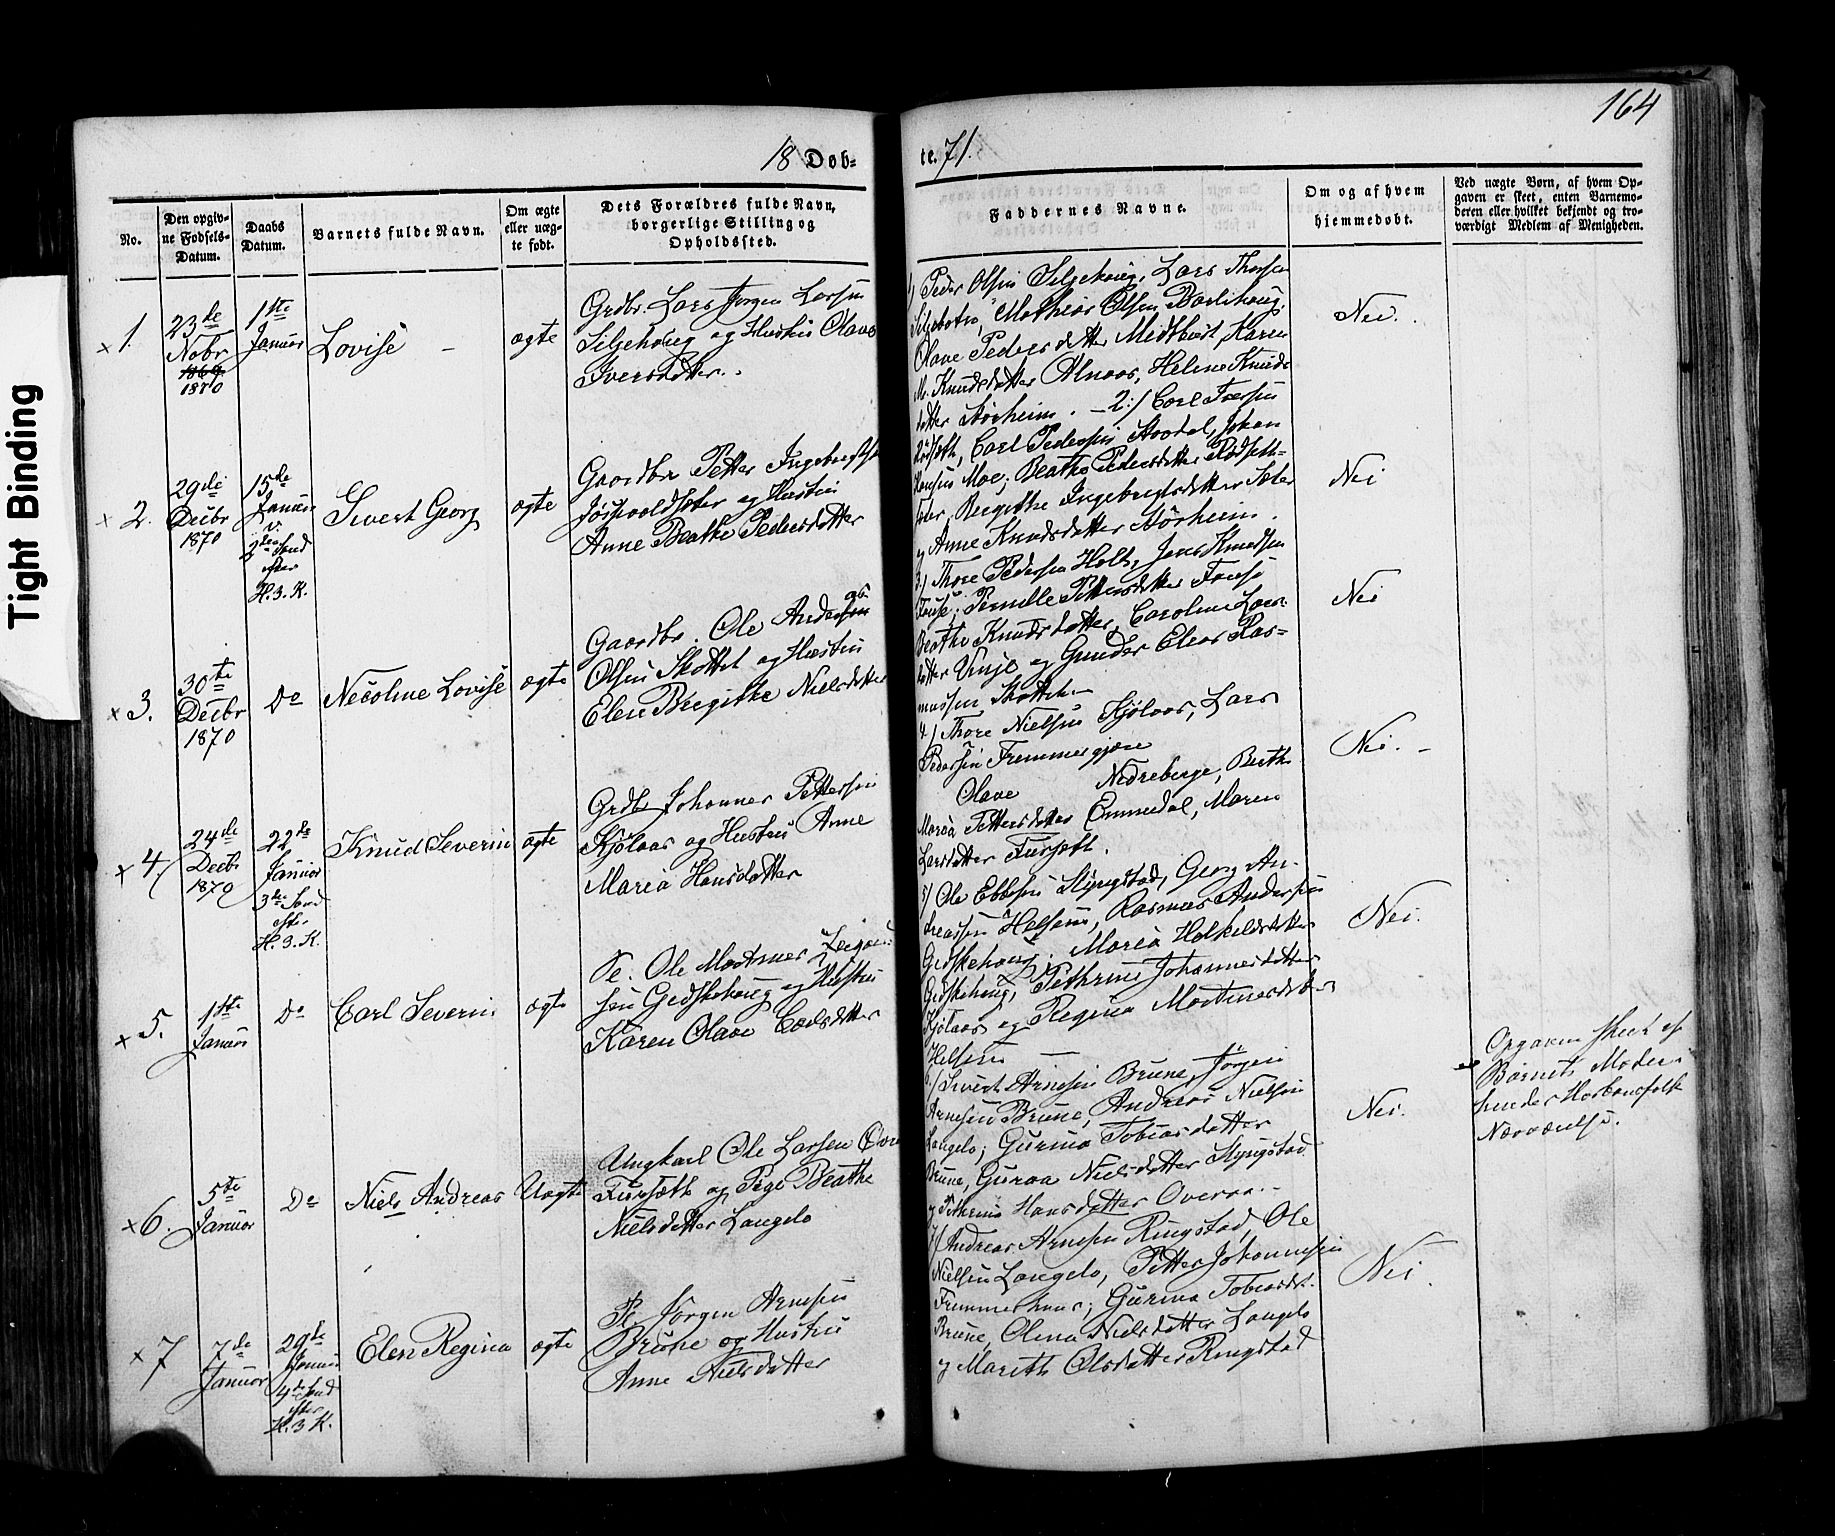 Tight Binding
164
18 Døb-
te. 71.
No.
Den opgiv-
ne Fødsels-
Datum.
Daabs
Datum.
Barnets fulde Navn.
Om ægte
eller uæg-
te født.
Dets Forældres fulde Navn,
borgerlige Stilling og
Opholdssted.
Faddernes Navne.
Om og af hvem
hjemmedøbt.
Ved uægte Børn, af hvem Op-
gaven er skeet, enten Barnemo-
deren eller hvilket bekjendt og tro-
værdigt Medlem af Menigheden.
x 1.
23de
Nobr
1869
1870
1ste
Januar
Lovise –
ægte
Grdbr. Lars Jørgen Larsen
Siljehoug og Hustru Olave
Iversdatter.
x 2.
29de
Decbr
1870
15de
Januar
2den Sønd
efter
H. 3. K.
Sivert Georg
ægte
Gaardbr Petter Ingebrigts
og Hustru
Anne Beathe Pedersdatter
x 3.
30te
Decbr
1870
Do
Necoline Lovise
ægte
Gaardbr. Ole Andersen
Olsen Skottet og Hustru
Elen Bregitthe Nielsdatter
x 4.
24de
Decbr
1870
22de
Januar
3die Sønd
efter
H. 3. K.
Knud Severin
ægte
Grdbr Johannes Pettersen
Kjølaas og Hustru Anne
Maria Hansdatter
x 5.
1ste
Januar
Do
Carl Severin
ægte
Ole Martinus
sen Gjedskehoug og Hustru
Karen Olave Carlsdatter
x 6.
5te
Januar
Do
Niels Andreas
Uægte
Ungkarl Ole Larsen Øvre
Fursæth og Pige Beathe
Nielsdatter Langelo
x 7
7de
Januar
29de
Januar
4de Sønd
efter
H. 3 K.
Elen Regina
ægte
Jørgen Arnesen
Brune og Hustru
Anne Nielsdatter
1) Peder Olsen Siljehoug, Lars Thorsen
Siljebotn, Mathias Olsen Barlihoug,
Olave Pedersdatter Midtbust, Karen
M. Knudsdatter Alnaas, Helene Knuds
datter Aørheim. – 2:) Carl
Rødsæth, Carl Pedersen Aasdal, Johan
Hansen Moe; Beathe Pedersdatter Rødseth-
Bergithe Ingebrigtsdatter
og Anne Knudsdatter Aørheim.
3) Thore Pedersen Holt, Jens Knudsen
Pernille Pettersdatter
Beathe Knudsdatter, Caroline Lars
datter Vinje og Gunder Elias Ras-
mussen Skottet
4) Thore Nielsen Kjølaas, Lars
Pedersen Fremmergjære
Olave Nedreberge, Berthe
Maria Pettersdatter Emmedal, Maren
Larsdatter Fursæth.
5) Ole Ebbesen Slyngstad, Georg An-
dreassen Helsem, Rasmus Andersen
Gjedskehoug. Maria
Gjedskehoug, Pethrine Johannesdatter
Kjølaas og Regina Martinusdatter
Helsem –
6) Sivert Arnesen Brune, Jørgen
Arnesen Brune, Andreas Nielsen
Langelo; Gurina Tobiasdatter
Brune, Guroa Nielsdatter Slyngstad
og Pethrine Hansdatter Overaa. –
7) Andreas Arnesen Ringstad, Ole
Nielsen Langelo, Petter Johannesen
Fremmerhaus; Gurina Tobiasdt.
Brune, Olena Nielsdatter Langelo
og Marith Olsdatter Ringstad
Nei.
Nei
Nei
Nei. –
Nei.
Nei.
Nei.
Opgaven skeet af
Barnets Moder i
hendes Husbondsfolk
Nærværelse.